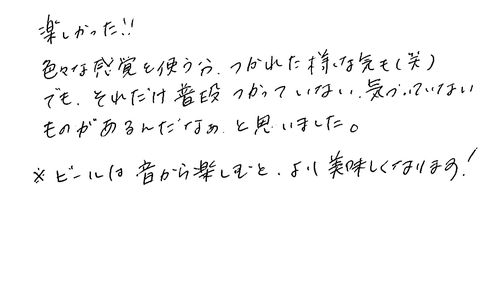 楽しかった!!
色々な感覚を使う分、つかれた様な気も(笑)
でも、それだけ普段つかっていない、気づいていない
ものがあるんだなぁ、と思いました。
※ビールは音から楽しむと、より美味しくなります!